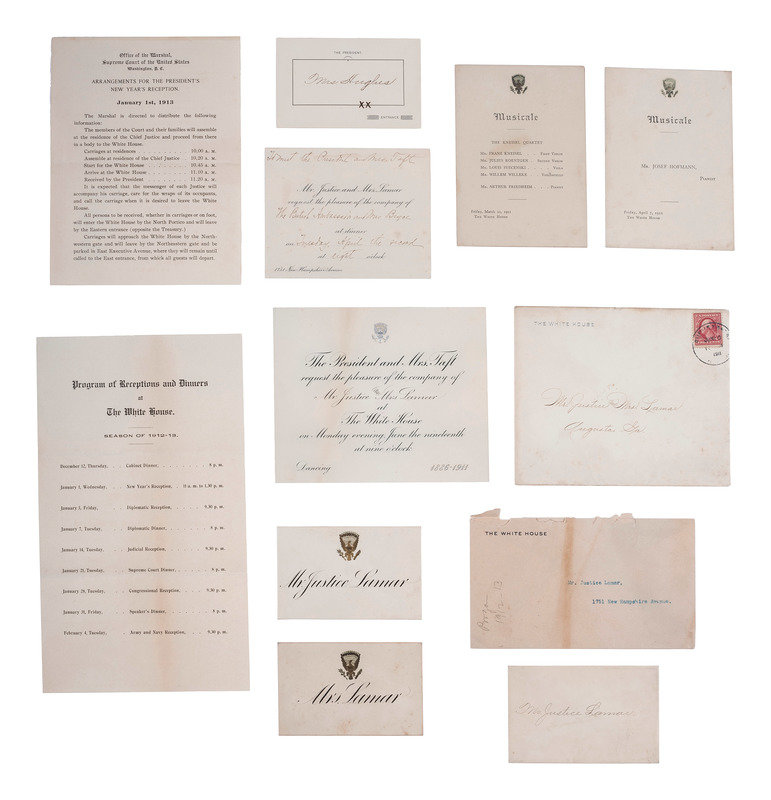 Office of the Marshal,
Supreme Court of the United States
Washington, D. C.
ARRANGEMENTS FOR THE PRESIDENT'S
NEW YEAR'S RECEPTION.
January 1st, 1913
The Marshal is directed to distribute the following
information:
The members of the Court and their families will assemble
at the residence of the Chief Justice and proceed from there
in a body to the White House.
Carriages at residences . . . 10.00 a. m.
Assemble at residence of the Chief Justice . . . 10.20 a. m.
Start for the White House . . . 10.45 a. m.
Arrive at the White House . . . 11.00 a. m.
Received by the President . . . 11.20 a. m.
It is expected that the messenger of each Justice will
accompany his carriage, care for the wraps of its occupants,
and call the carriage when it is desired to leave the White
House.
All persons to be received, whether in carriages or on foot,
will enter the White House by the North Portico and will leave
by the Eastern entrance (opposite the Treasury.)
Carriages will approach the White House by the North-
western gate and will leave by the Northeastern gate and be
parked in East Executive Avenue, where they will remain until
called to the East entrance, from which all guests will depart.
THE PRESIDENT
Mrs Hughes
XX
ENTRANCE
Musicale
THE KNEISEL QUARTET
Mr. Franz Kneisel . . . First Violin
Mr. Julius Roentgen . . . Second Violin
Mr. Louis Svecenski . . . Viola
Mr. Willem Willeke . . . Violoncello
Mr. Arthur Friedheim . . . Pianist
Friday, March
The White House
Musicale
Mr. Josef Hofmann,
Pianist
Friday, April 7, 1911
The White House
to meet the President and Mrs. Taft
Mr. Justice and Mrs. Lamar
request the pleasure of the company of
The British Ambassador and Mrs Bryce
at dinner
on Tuesday April the second
at eight o'clock
1751 New Hampshire Avenue
Program of Receptions and Dinners
at
The White House.
SEASON OF 1912-13.
December 12, Thursday, . . Cabinet Dinner, . . . 8 p. m.
January 1, Wednesday, . . New Year's Reception, . . 11 a. m. to 1.30 p. m.
January 3, Friday, . . Diplomatic Reception, . . . 9.30 p. m.
January 7, Tuesday, . . Diplomatic Dinner, . . . 8 p. m.
January 14, Tuesday, . . Judicial Reception, . . . 9.30 p. m.
January 21, Tuesday, . . Supreme Court Dinner, . . . 8 p. m.
January 28, Tuesday, . . Congressional Reception, . . . 9.30 p. m.
January 31, Friday, . . Speaker's Dinner, . . . 8 p. m.
February 4, Tuesday, . . Army and Navy Reception, . . . 9.30 p. m.
The President and Mrs. Taft
request the pleasure of the company of
Mr Justice and Mrs Lamar
at
The White House
on Monday evening June the nineteenth
at nine o'clock
Dancing 1886-1911
THE WHITE HOUSE
Mr Justice & Mrs. Lamar
Augusta Ga
Mr. Justice Lamar
Mrs. Lamar
THE WHITE HOUSE
Mr. Justice Lamar,
1751 New Hampshire Avenue.
Mr Justice Lamar